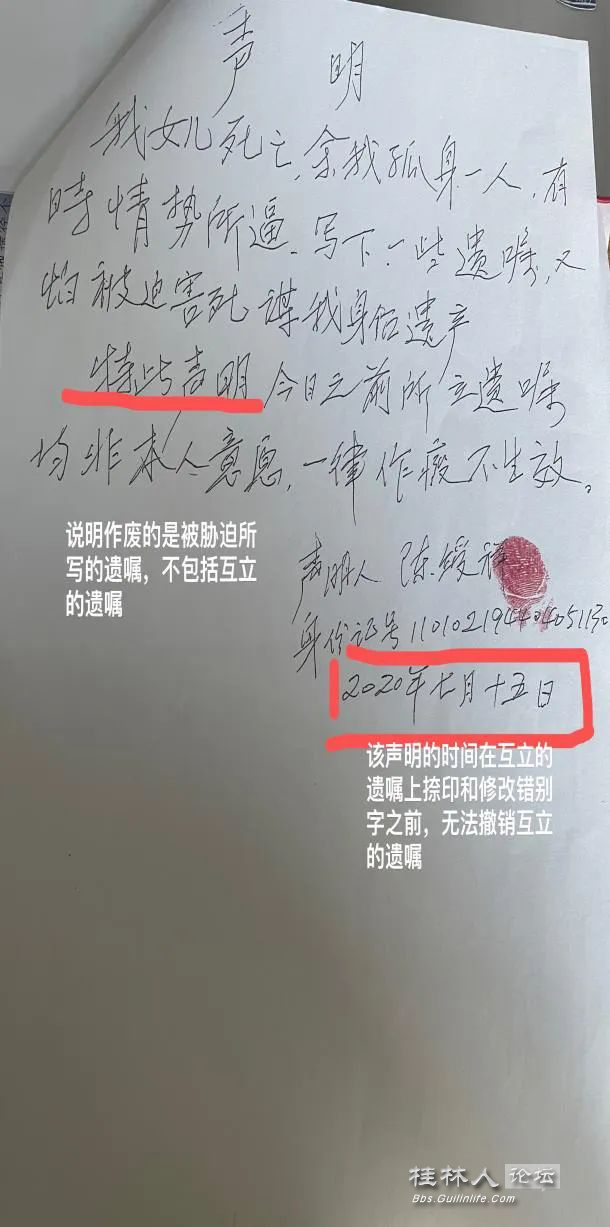 声 明
我女儿死亡，余我孤身一人，有
时情势所逼、写下一些遗嘱，又
怕被迫害死谋我身后遗产
特此声明，今日之前所立遗嘱
均非本人意愿，一律作废不生效。
说明作废的是被胁迫所
写的遗嘱，不包括互立
的遗嘱
声明人 陈绶祥
身份证号 110102194404051130
2020年七月十五日
该声明的时间在互立的
遗嘱上捺印和修改错别
字之前，无法撤销互立
的遗嘱
桂林人论坛
Bbs.Guilinlife.Com